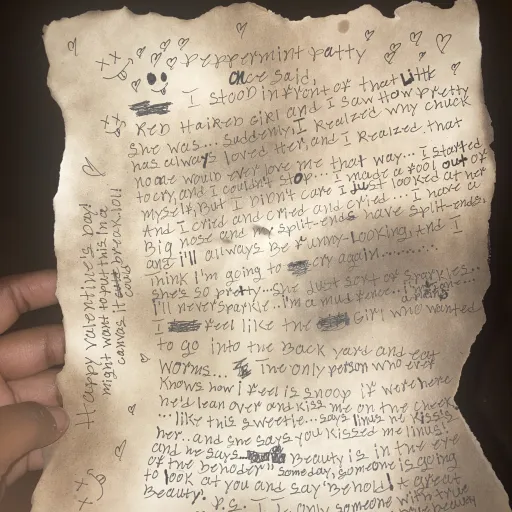 Peppermint Patty
Once said,
I stood in front of that Little
Red Haired Girl and I saw How Pretty
she was... suddenly, I Realized why chuck
has always loved Her, and I Realized that
no one would ever love me that way... I started
to cry, and I couldn't stop... I made a fool out of
myself, But I Didn't care I Just looked at her
And I cried and cried and cried... I have a
Big nose and my split-ends have split-ends,
and i'll always Be funny-Looking, and I
think I'm going to cry again.........
she's so pretty... she Just sort of sparkles..
I'll never sparkle.. I'm a mud fence..
I feel like the Girl who wanted
to go into the Back yard and eat
worms... The only person who ever
knows how I feel is snoop if he were here
he'd lean over and kiss me on the cheek
...like this sweetie... says linus he kisses
her.. and she says you kissed me linus!
and he says Beauty is in the eye
of the behoder" someday, someone is going
to look at you and say "Behold! A great
Beauty."
P.S. I is only someone with true
Beauty
Happy valentine's Day!
might want to put this in a
canvas it could break you